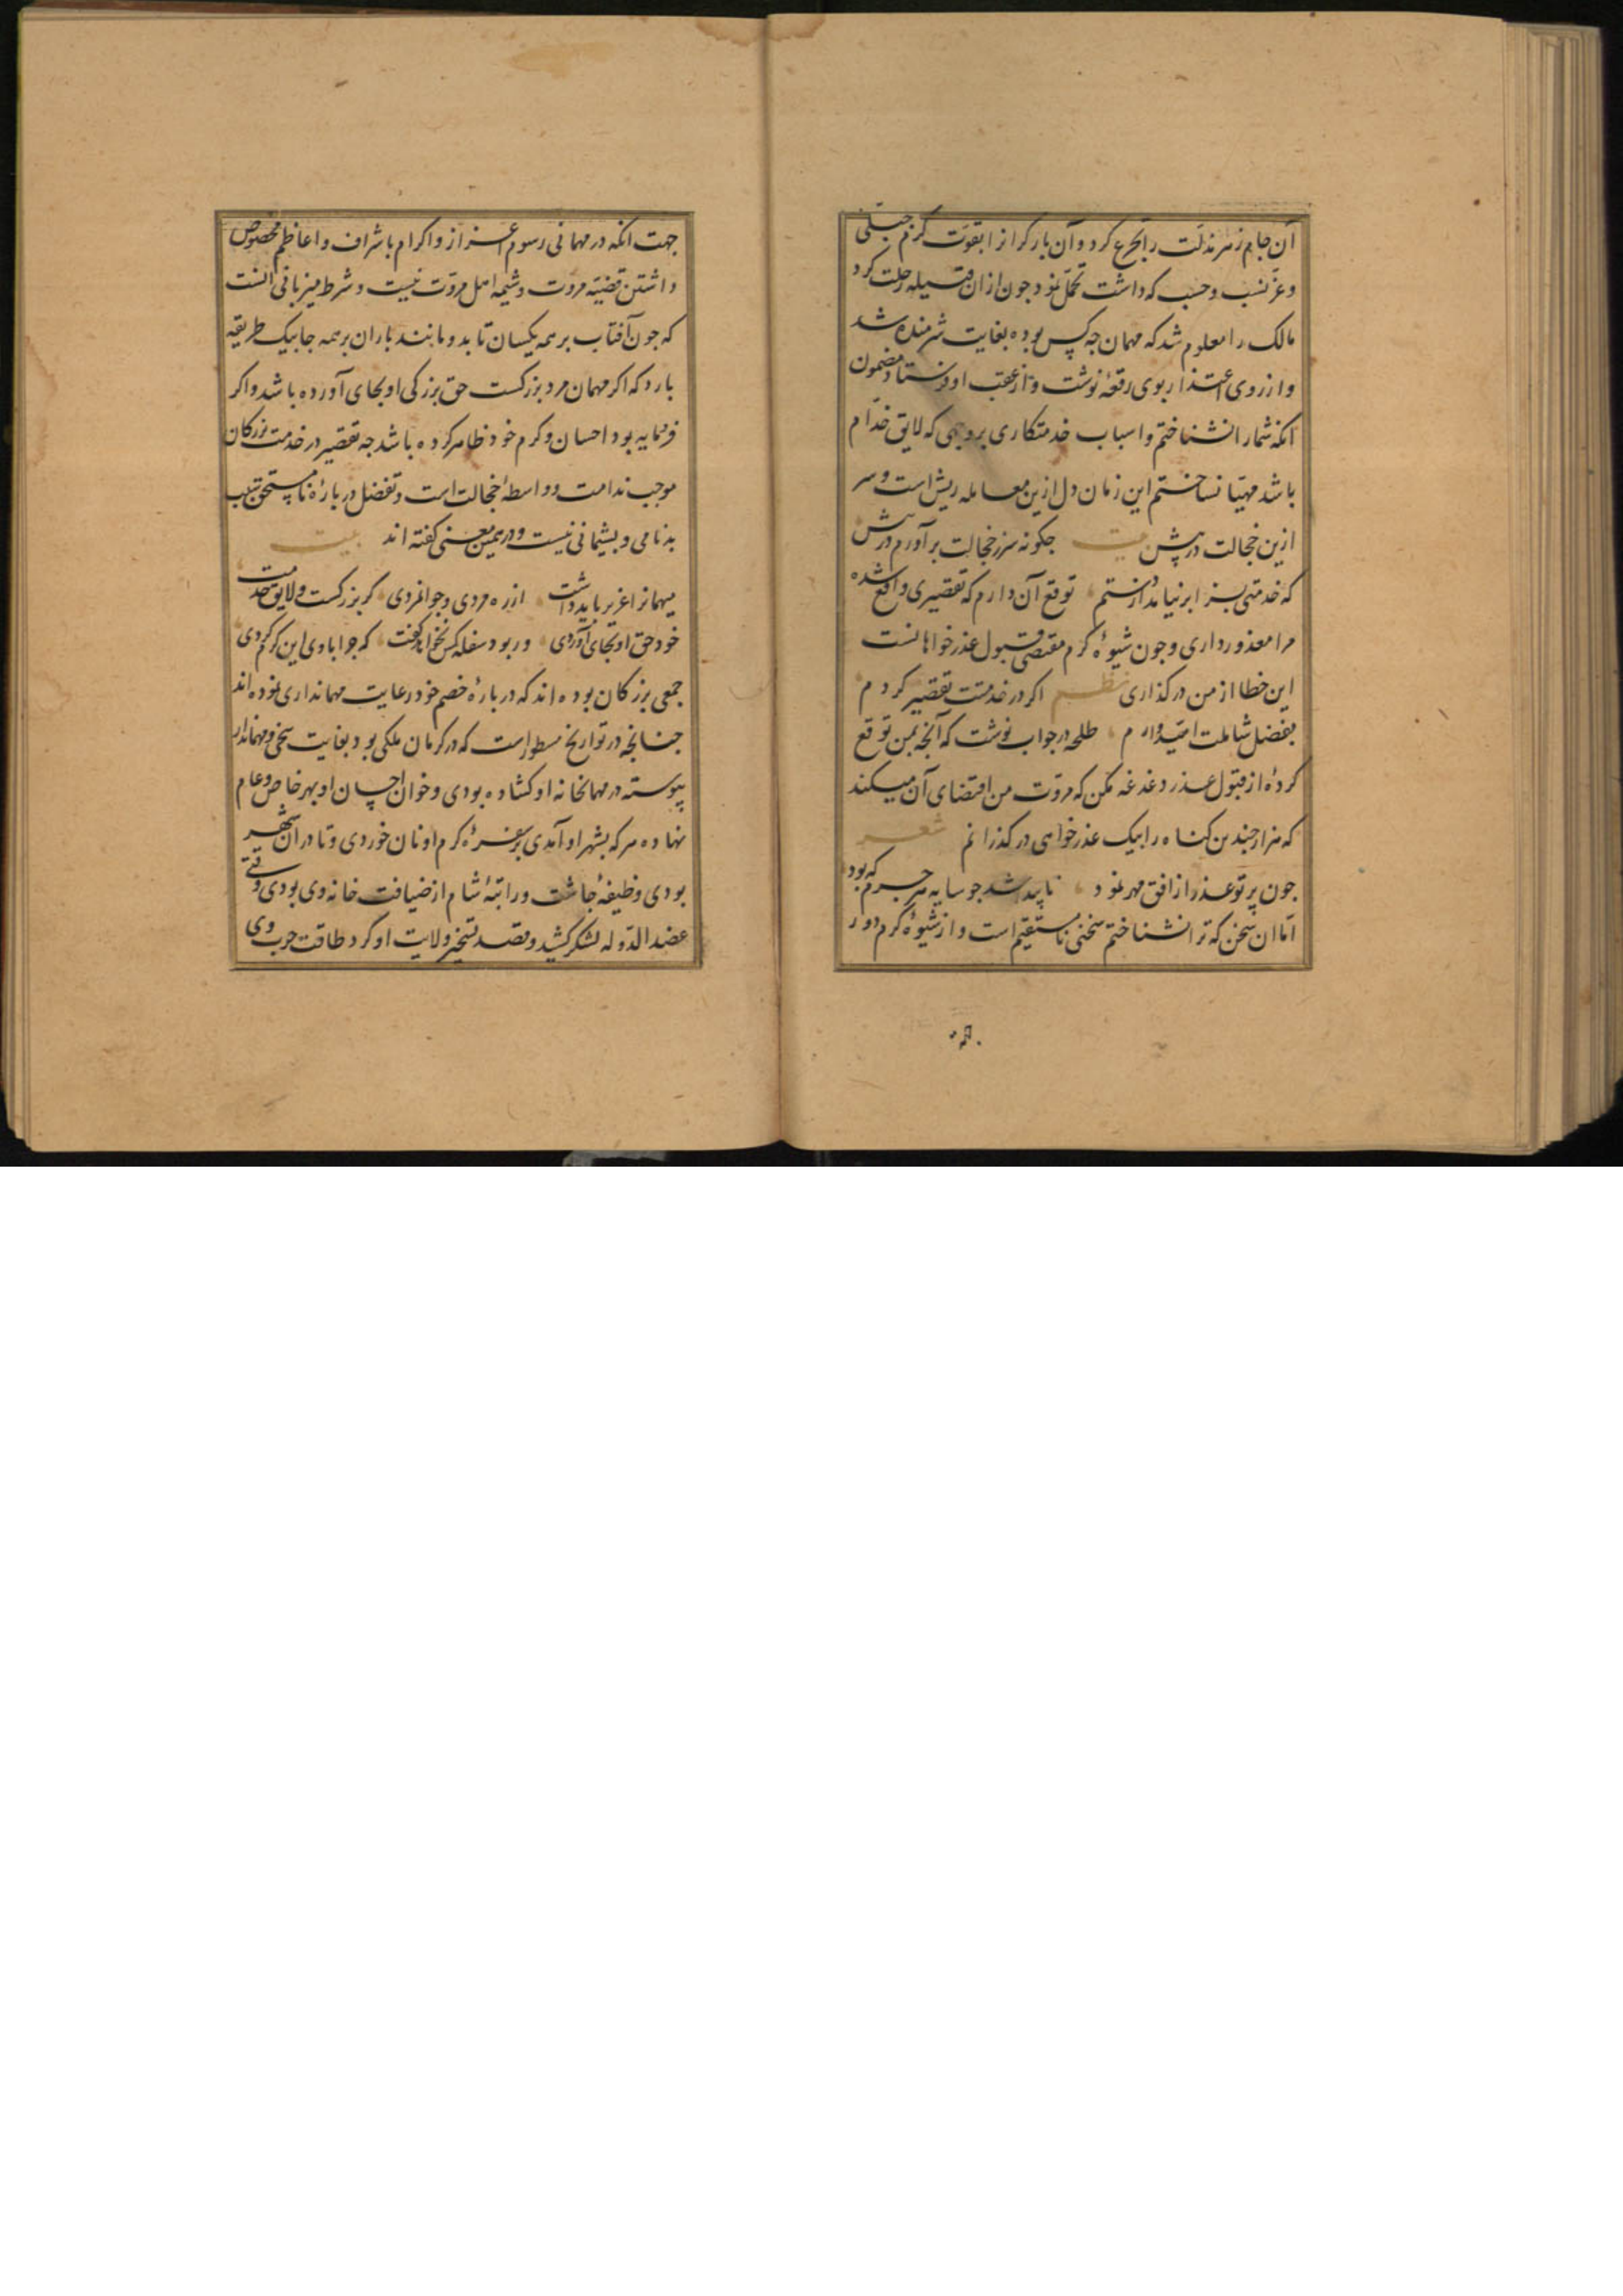 آن جام زهر مذلت را تجرع کرد و آن بار کرانرا بقوت کرم جبلی
و عز نسب و حسب که داشت تحمل نمود جون از ان قبیله رحلت کرد
مالک را معلوم شد که مهمان جه کس بوده بغایت شرمنده شد
و از روی اعتذار بوی رقعهٔ نوشت و از عقب او فرستاد مضمون
انکه شما را نشناختم و اسباب خدمتکاری بروجهی که لایق خدام
باشد مهیا نساختم این زمان دل ازین معامله ریش است و سر
ازین خجالت در پیش بیت جکونه سر ز خجالت برآورم در پیش
که خدمتی بسزا بر نیامد از دستم توقع آن دارم که تقصیری واقع شده
مرا معذور داری و جون شیوهٔ کرم مقتضی قبول عذر خواهانست
این خطا از من در کذاری نظم اکر در خدمتت تقصیر کردم
بفضل شاملت امیدوارم طلحه در جواب نوشت که آنجه بمن توقع
کردهٔ از قبول عذر دغدغه مکن که مروت من اقتضای آن میکند
که هزار جندین کناه را بیک عذر خواهی در کذرانم شعر
جون پرتو عذر از افق مهر نمود ناپید شد جو سایه هر جرم که بود
اما ان سخن که ترا نشناختم سخنی نا مستقیم است و از شیوهٔ کرم دور
جهت انکه در مهمانی رسوم اعزاز و اکرام باشراف و اعاظم مخصوص
داشتن قضیه مروت و شیمه اهل مروت نیست و شرط میزبانی انست
که جون آفتاب بر همه یکسان تابد و مانند باران بر همه جا بیک طریقه
بارد که اکر مهمان مرد بزرکست حق بزرکی او بجای آورده باشد و اکر
فرومایه بود احسان و کرم خود ظاهر کرده باشد جه تقصیر در خدمت بزرکان
موجب ندامت و واسطهٔ خجالت است و تفضل در بارهٔ نا مستحق سبب
بدنامی و پشیمانی نیست و در همین معنی کفته اند بیت
میهمانرا عزیز باید داشت از ره مردی و جوانمردی کر بزرکست و لایق خدمت
خود حق او بجای آوردی ور بود سفله کس نخواهد کفت که جرا با وی این کرم کردی
جمعی بزرکان بوده اند که در بارهٔ خصم خود رعایت مهمانداری نموده اند
جنانجه در تواریخ مسطور است که در کرمان ملکی بود بغایت سخی و مهماندار
پیوسته در مهمانخانه او کشاده بودی و خوان احسان او بهر خاص و عام
نهاده هر که بشهر او آمدی بر سفرهٔ کرم او نان خوردی و تا در ان شهر
بودی وظیفهٔ جاشت و راتبهٔ شام از ضیافت خانه وی بودی وقتی
عضد الدوله لشکر کشید و قصد تسخیر ولایت او کرد طاقت حرب وی